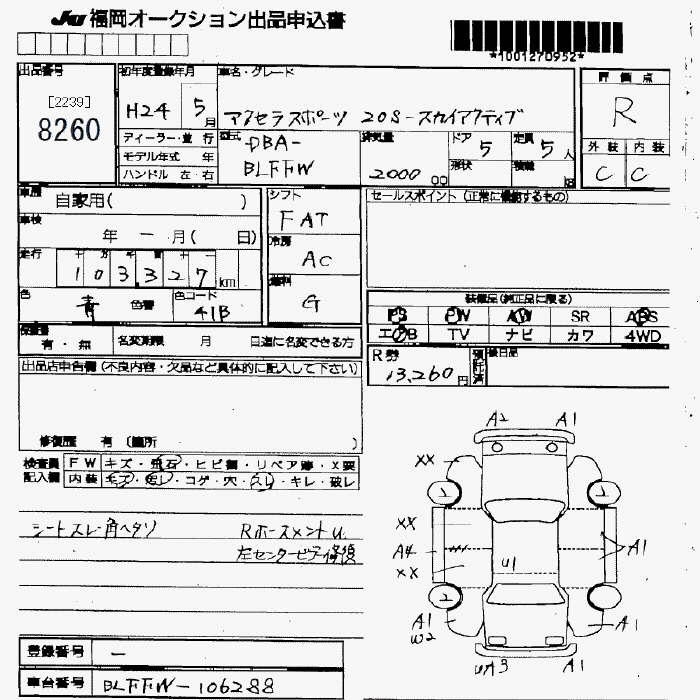 JU 福岡オークション出品申込書
*1001270952*
出品番号 初年度登録年月 車名・グレード 評価点
[2239]
8260
H24 5月 アクセラスポーツ 20S-スカイアクティブ R
ディーラー・並行 型式 DBA-BLFFW 排気量 2000cc ドア 5 定員 5人 外装 内装
モデル年式 年 形状 積載 kg C C
ハンドル 左・右
車歴 自家用( ) シフト FAT セールスポイント (正常に機能するもの)
車検 年 ー 月( 日) 冷房 AC
走行 十 万 千 百 十
103327km 燃料 G
色 青 色替 色コード 41B
装備品(純正品に限る)
PS PW AW SR ABS
エアB TV ナビ カワ 4WD
保証書 有・無 名変期限 月 日迄に名変できる方
R券 13,260円 預託済 後日品
出品店申告欄 (不良内容・欠品など具体的に記入して下さい)
修復歴 有 (箇所
検査員 FW キズ・飛石・ヒビ割・リペア跡・X要
記入欄 内装 キズ・汚レ・コゲ・穴・スレ・キレ・破レ
シートスレ角ヘタリ Rホースメントu.
左センターピラー修復
A2 A1
XX
2 2
XX
A4 A1
XX U1
2 2
A1 A1
W2
UA3 A1
登録番号 ー
車台番号 BLFFW-106288